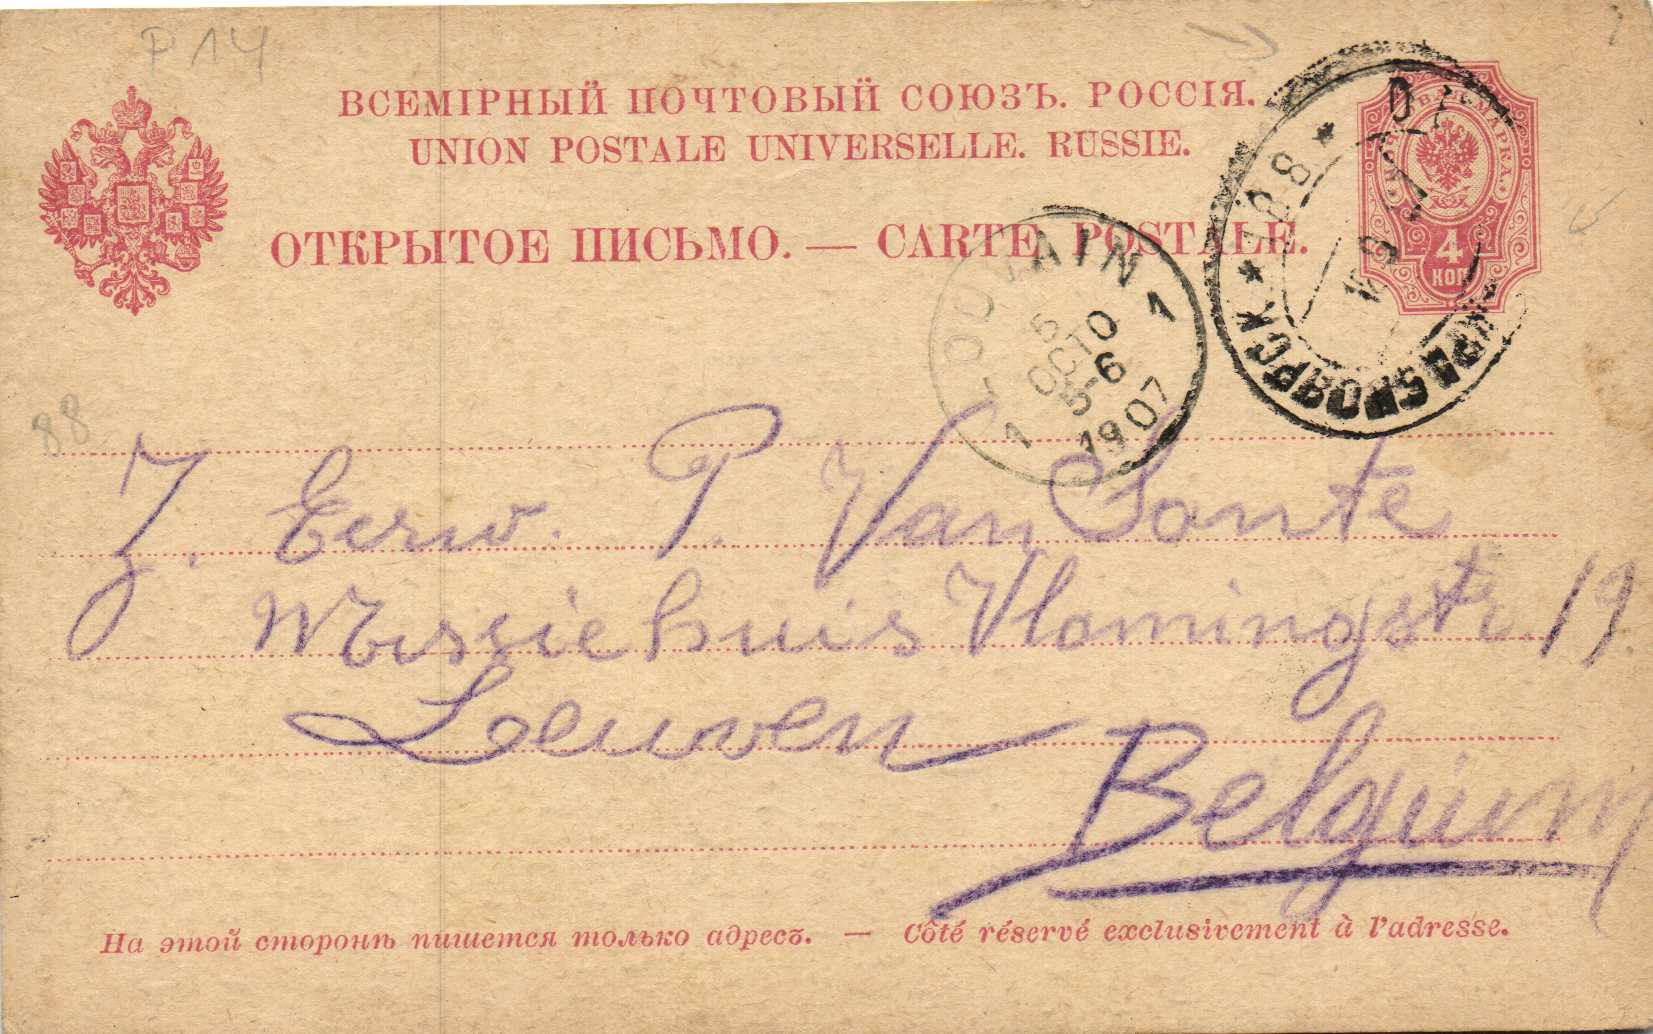 P 14
ВСЕМІРНЫЙ ПОЧТОВЫЙ СОЮЗЪ. РОССІЯ.
UNION POSTALE UNIVERSELLE. RUSSIE.
ОТКРЫТОЕ ПИСЬМО. — CARTE POSTALE.
МАРКА.
4
КОП
КРАСНОЯРСК
LOUVAIN
1 1
5 OCTO
5 6
1907
88
Z. Eerw. P. Van Sante
Missiehuis Vlamingstr. 19
Leuven
Belgium
На этой сторонѣ пишется только адресъ. — Côté réservé exclusivement à l'adresse.